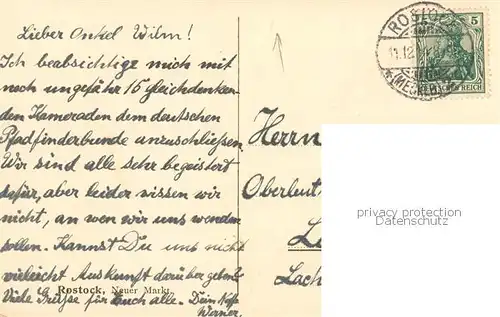 Lieber Onkel Wilm!
Ich beabsichtige mich mit
noch ungefähr 15 Gleichdenken-
den Kameraden dem deutschen
Pfadfinderbunde anzuschließen.
Wir sind alle sehr begeistert
dafür, aber leider wissen wir
nicht, an wen wir uns wenden
sollen. Kannst Du uns nicht
vielleicht Auskunft darüber geben?
Viele Grüße für Euch alle. Dein
Werner.
Rostock, Neuer Markt.
ROSTOCK
11.12
(MECKLB)
5
DEUTSCHES REICH
Herrn
Oberleut
privacy protection
Datenschutz